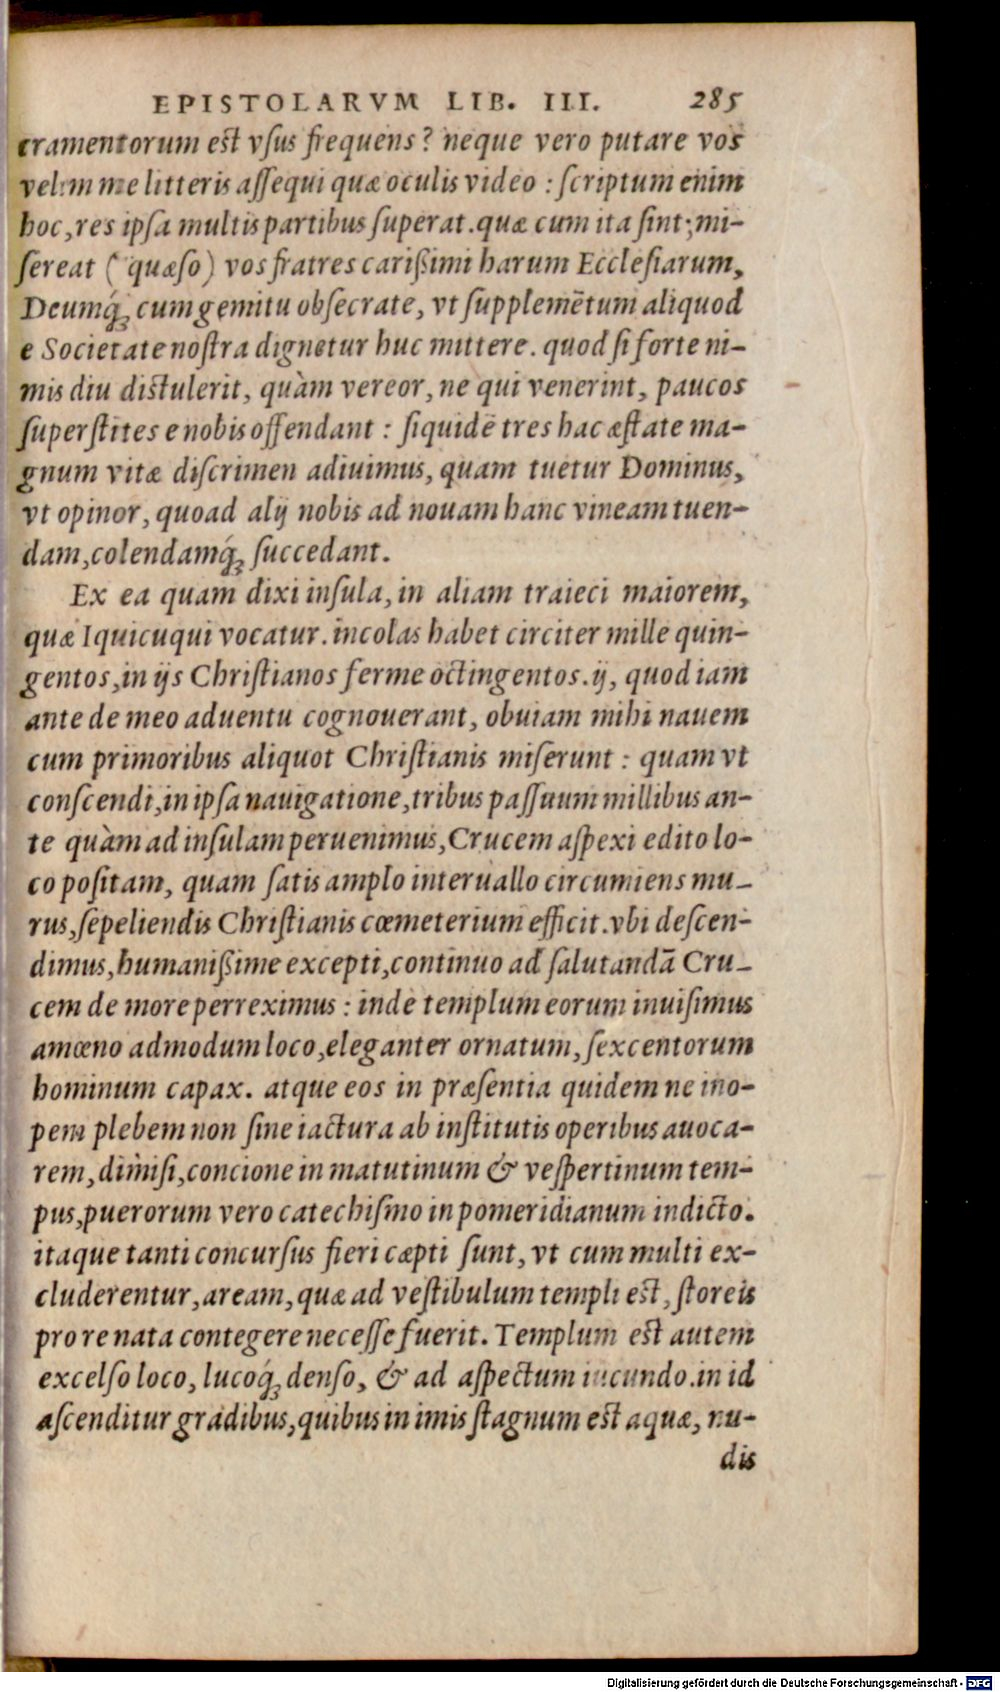 EPISTOLARVM LIB. III. 285
cramentorum est vſus frequens? neque vero putare vos
velim me litteris aſſequi quæ oculis video: ſcriptum enim
hoc, res ipſa multis partibus ſuperat. quæ cum ita ſint; mi-
ſereat (quæſo) vos fratres carißimi harum Eccleſiarum,
Deumq́ꝫ cum gemitu obſecrate, vt ſupplemẽtum aliquod
e Societate noſtra dignetur huc mittere. quod ſi forte ni-
mis diu distulerit, quàm vereor, ne qui venerint, paucos
ſuperſtites e nobis offendant: ſiquidẽ tres hac æſtate ma-
gnum vitæ diſcrimen adiuimus, quam tuetur Dominus,
vt opinor, quoad alij nobis ad nouam hanc vineam tuen-
dam, colendamq́ꝫ ſuccedant.
Ex ea quam dixi inſula, in aliam traieci maiorem,
quæ Iquicuqui vocatur. incolas habet circiter mille quin-
gentos, in ijs Chriſtianos ferme octingentos. ij, quod iam
ante de meo aduentu cognouerant, obuiam mihi nauem
cum primoribus aliquot Chriſtianis miſerunt: quam vt
conſcendi, in ipſa nauigatione, tribus paſſuum millibus an-
te quàm ad inſulam peruenimus, Crucem aſpexi edito lo-
co poſitam, quam ſatis amplo interuallo circumiens mu-
rus, ſepeliendis Chriſtianis cœmeterium efficit. vbi deſcen-
dimus, humanißime excepti, continuo ad ſalutandã Cru-
cem de more perreximus: inde templum eorum inuiſimus
amœno admodum loco, eleganter ornatum, ſexcentorum
hominum capax. atque eos in præſentia quidem ne ino-
pem plebem non ſine iactura ab inſtitutis operibus auoca-
rem, dimiſi, concione in matutinum & veſpertinum tem-
pus, puerorum vero catechiſmo in pomeridianum indicto.
itaque tanti concurſus fieri cæpti ſunt, vt cum multi ex-
cluderentur, aream, quæ ad veſtibulum templi est, ſtoreis
pro re nata contegere neceſſe fuerit. Templum est autem
excelſo loco, lucoq́ꝫ denſo, & ad aſpectum iucundo. in id
aſcenditur gradibus, quibus in imis ſtagnum est aquæ, nu-
dis
Digitalisierung gefördert durch die Deutsche Forschungsgemeinschaft - DFG